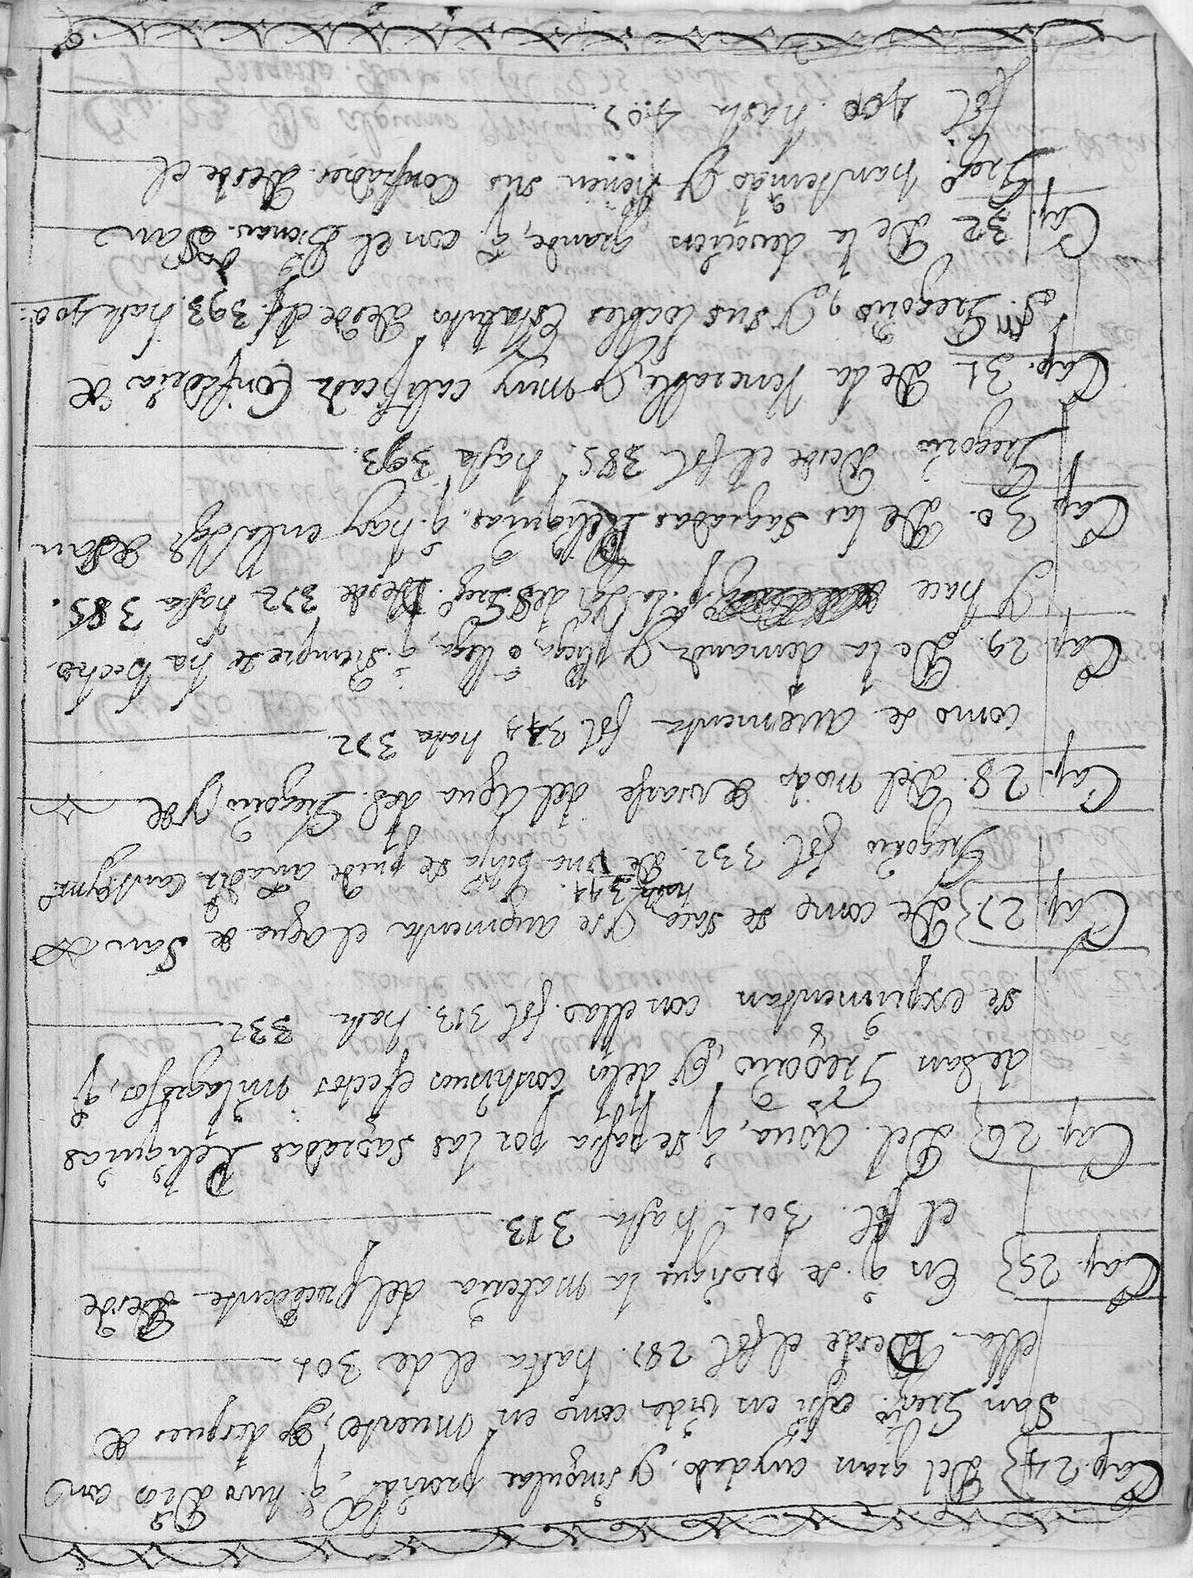 Cap. 24 Del gran cuydado, y singular provida, q. tuvo Dios con
San Grego. assi en vida como en muerte, y despues de
ella. Desde el fol. 287. hasta el de 301
Cap. 25 En q. se prosigue la materia del precedente desde
el fol. 301. hasta 313
Cap. 26 Del Agua, q. se passa por las sagradas Reliquias
de San Gregorio, y delos continuos efectos milagrosos, q.
se experimentan con ellas. fol 313. hasta 332
Cap. 27 De como se saca, y se augmenta el agua de San
Gregorio fol. 332. hasta 344. De una botija se puede añadir
Cap. 28. Del modo de usarse del Agua de S. Gregorio y de
como se augmenta fol. 344 hasta 372
Cap. 29. De la demanda, y plega, ô llega, q. siempre se ha hecho
y hace p. la Bas. de S. Greg. desde 372 hasta 385.
Cap. 30. De las sagradas Reliquias, q. hay en la Bas. de San
Gregorio desde el fol. 385. hasta 393.
Cap. 31 De la Venerable, y muy calificada Confadria de
S. Gregorio, y sus loables Estatutos desde el f. 393. hasta 400.
Cap. 32 De la devocion grande, q. con el Bienav. San
Grego. han tenido, y tienen sus Confadres. desde el
fol 400. hasta 407.